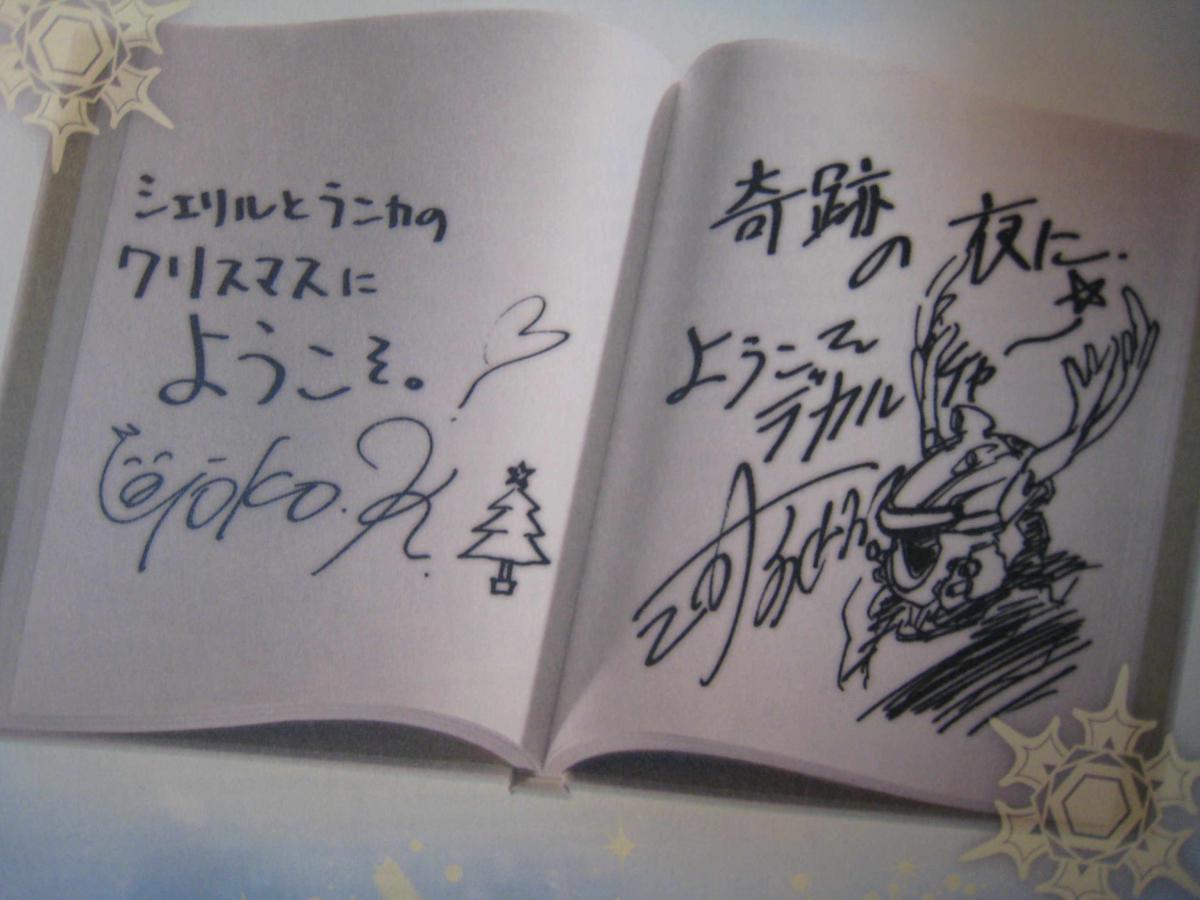 シェリルとランカの
クリスマスに
ようこそ。
Yoko.K
奇跡
の夜に
ようこそ
デカルチャ